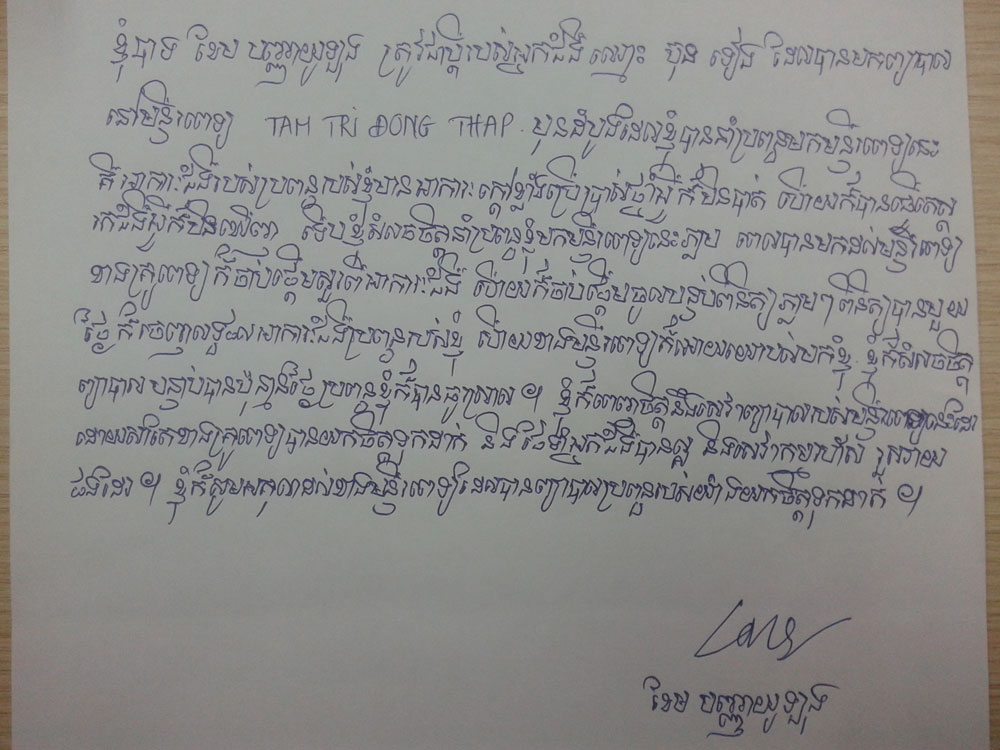 ខ្ញុំបាទ ខែម បញ្ញាយូឡុង ត្រូវជាប្ដីរបស់អ្នកជំងឺ ឈ្មោះ ប៊ុន ទៀង ដែលបានមកព្យាបាល
នៅមន្ទីរពេទ្យ TAM TRI DONG THAP. មុនដំបូងដែលខ្ញុំបាននាំប្រពន្ធមកមន្ទីរពេទ្យនេះ
គឺ អាការៈជំងឺរបស់ប្រពន្ធរបស់ខ្ញុំមានអាការៈក្ដៅខ្លាំងប្រើប្រាស់ថ្នាំអ្វីក៏មិនបាត់ ហើយក៏បានធ្វើតេស្ត
រកជំងឺអ្វីក៏មិនឃើញ ទើបខ្ញុំសំរេចចិត្តនាំប្រពន្ធខ្ញុំមកមន្ទីរពេទ្យនេះភ្លាម ពេលបានមកដល់មន្ទីរពេទ្យ
ខាងគ្រូពេទ្យក៏ចាប់ផ្ដើមសួរពីអាការៈជំងឺ ហើយក៏ចាប់ផ្ដើមចូលបន្ទប់ពិនិត្យភ្លាមៗ ពិនិត្យបានមួយ
ថ្ងៃ ក៏ចេញលទ្ធផលអាការៈជំងឺប្រពន្ធរបស់ខ្ញុំ ហើយខាងមន្ទីរពេទ្យក៏អោយយោបល់មកខ្ញុំ ខ្ញុំក៏សំរេចចិត្ត
ព្យាបាល បន្ទាប់បានប៉ុន្មានថ្ងៃប្រពន្ធខ្ញុំក៏បានធូរស្រាល ។ ខ្ញុំក៏ពេញចិត្តនឹងសេវាព្យាបាលរបស់មន្ទីរពេទ្យនេះដែរ
ដោយសារតែខាងគ្រូពេទ្យបានយកចិត្តទុកដាក់ និង ថែទាំអ្នកជំងឺបានល្អ និងសេវាកម្មរហ័ស រួសរាយ
ផងដែរ ។ ខ្ញុំក៏សូមអរគុណដល់ខាងមន្ទីរពេទ្យដែលបានព្យាបាលប្រពន្ធរបស់យ៉ាងយកចិត្តទុកដាក់ ។
ខែម បញ្ញាយូឡុង